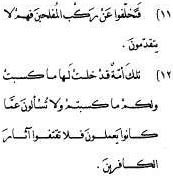 (١١) فتخلّفوا عن ركب المفلحين فهم لا
يتقدّمون .
(١٢) تلك أمّة قد خلت لها ما كسبت
ولكم ما كسبتم ولا تسألون عمّا
كانوا يعملون فلا تقتفوا آثار
الكافرين .